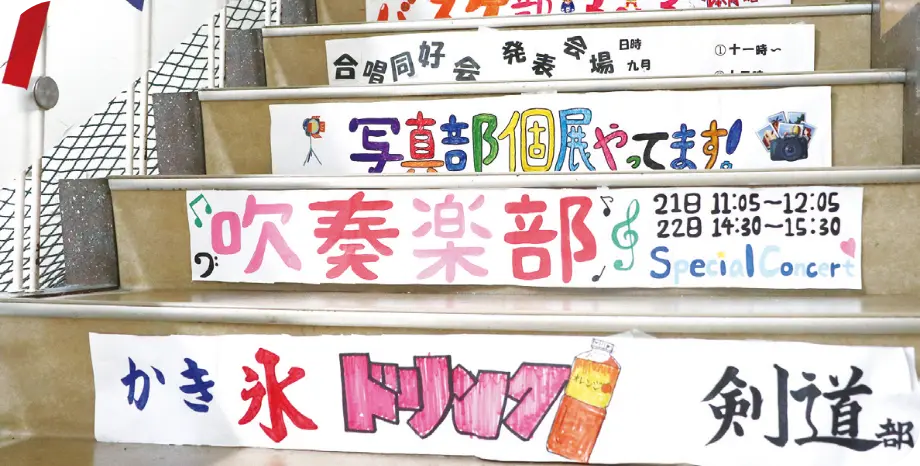 バスケ部
合唱同好会 発表会場 日時 九月 ①十一時〜
写真部個展やってます!
吹奏楽部
21日 11:05〜12:05
22日 14:30〜15:30
Special Concert
かき氷 ドリンク 剣道部
オレンジ